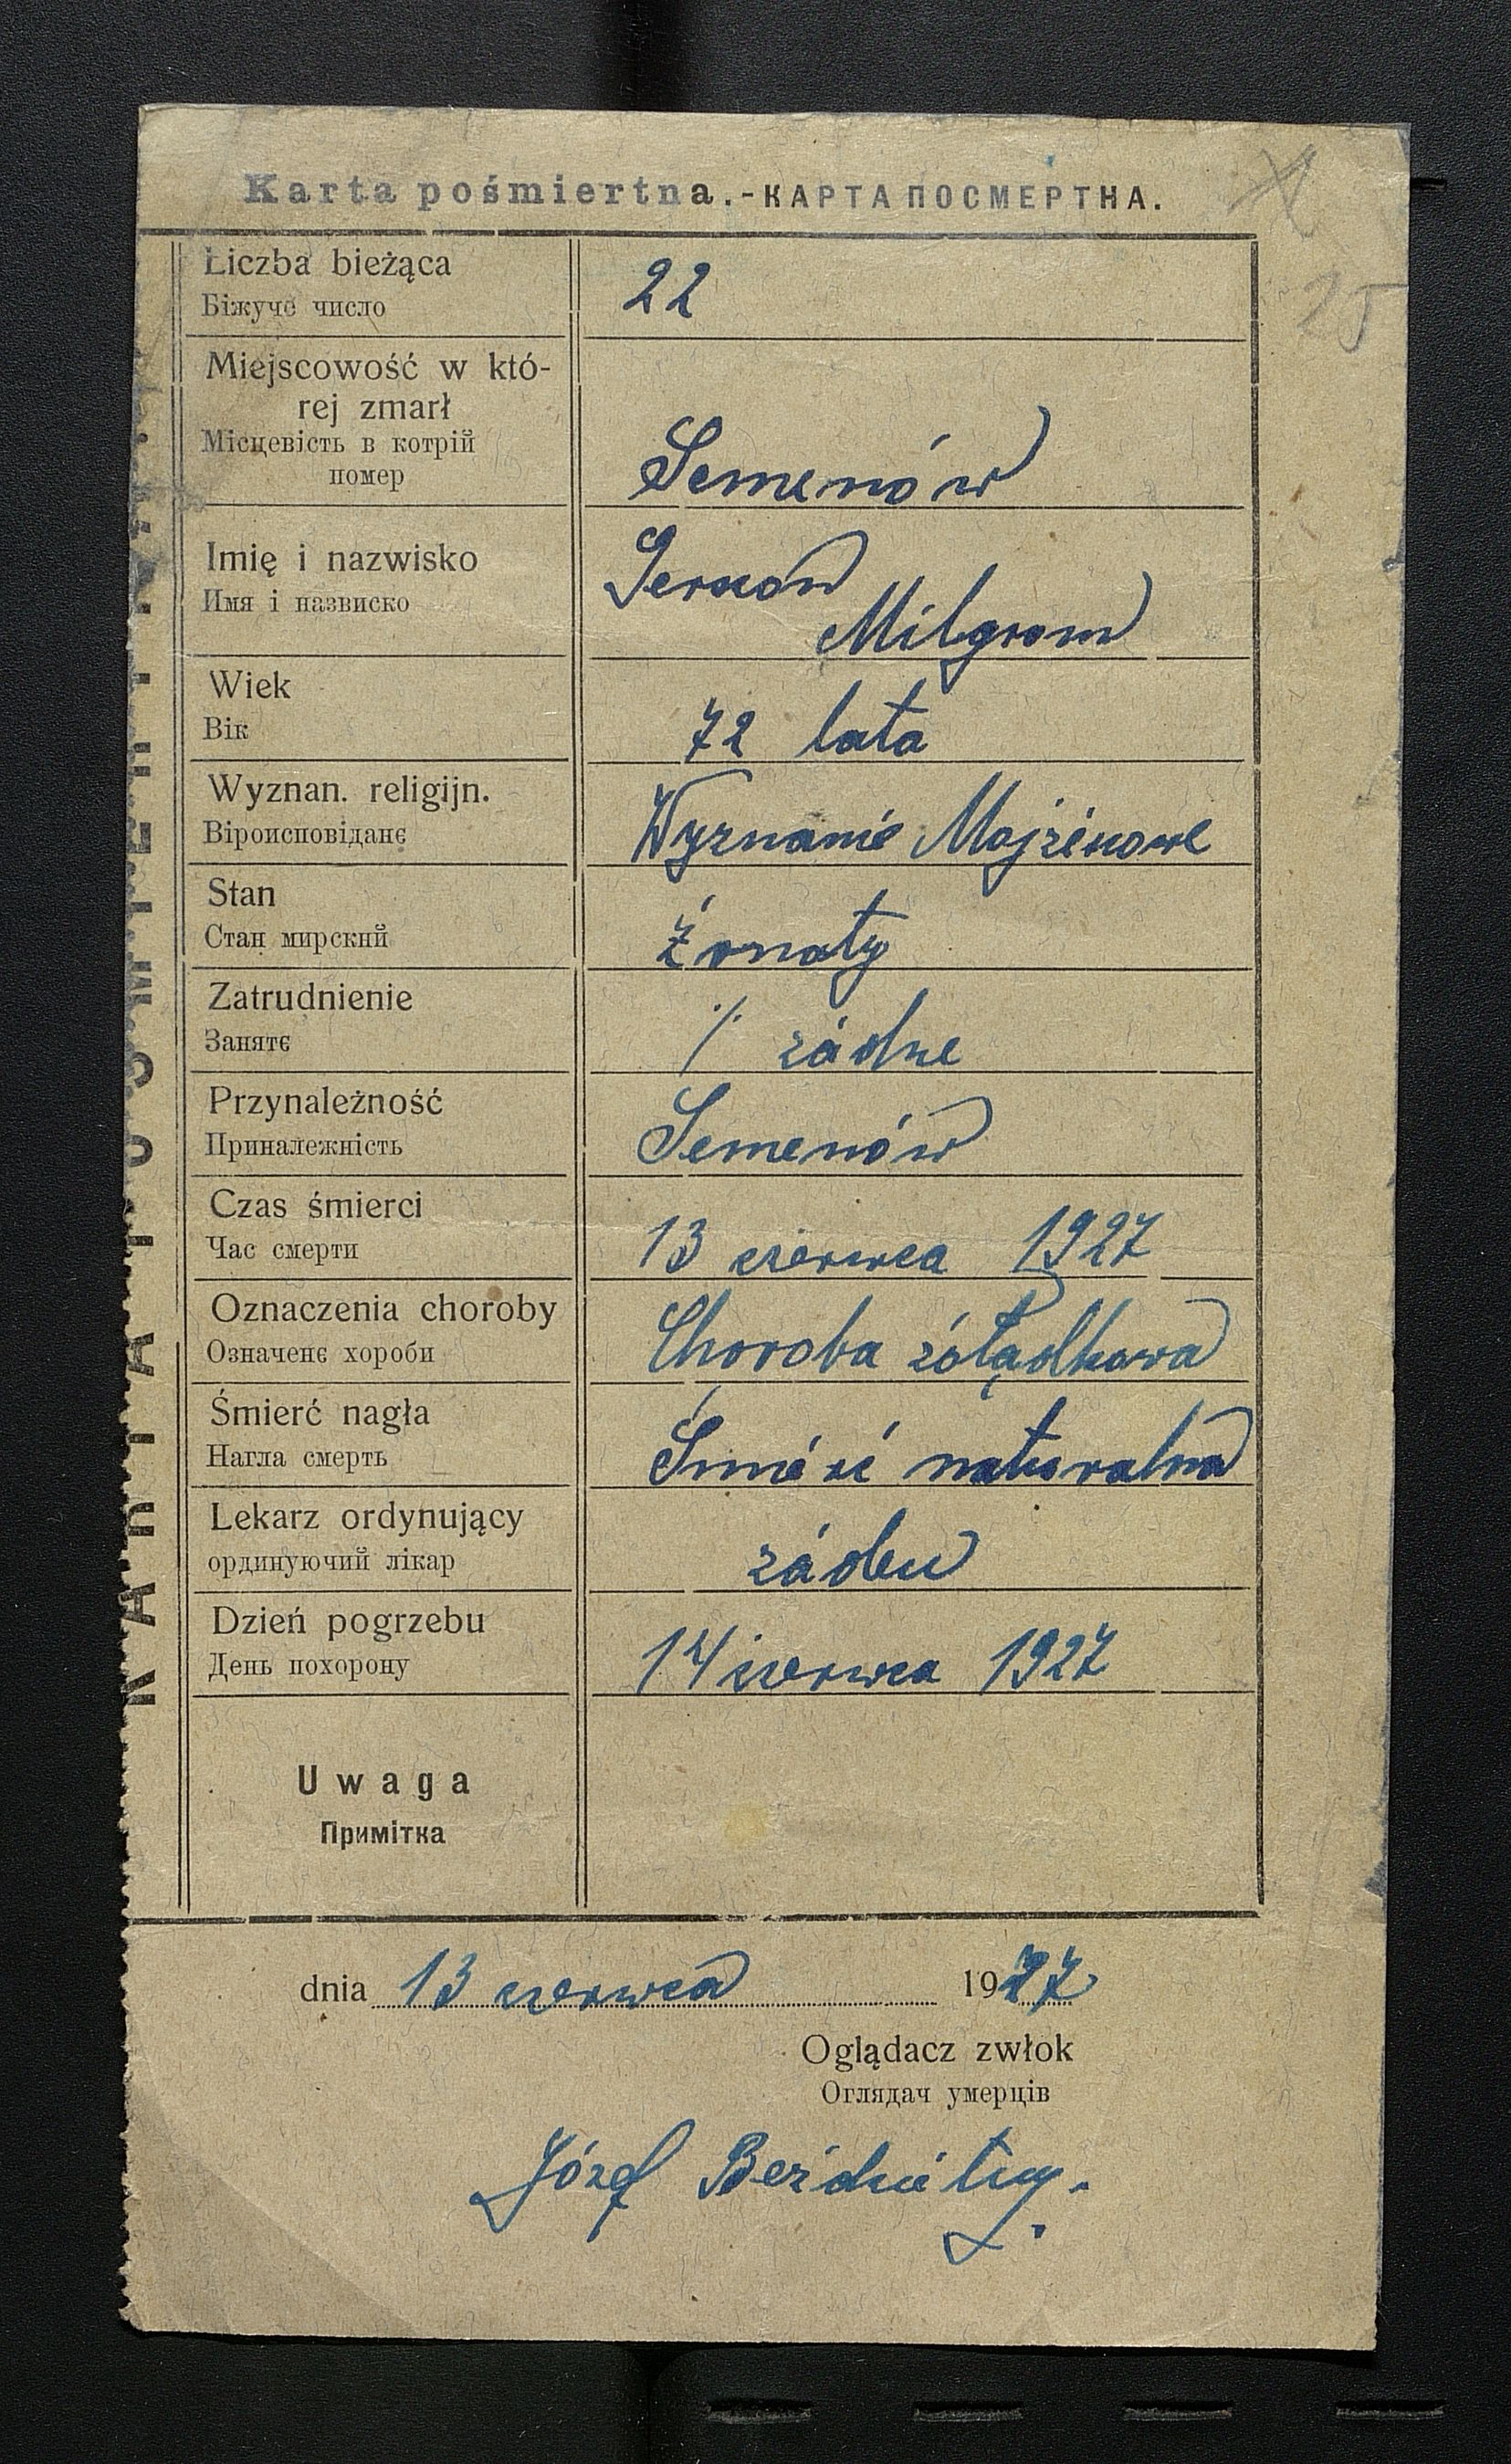 Karta pośmiertna.-КАРТА ПОСМЕРТНА.
25
Liczba bieżąca
Біжуче число
22
Miejscowość w któ-
rej zmarł
Місцевість в котрій
помер
Semenów
Imię i nazwisko
Имя і назвиско
Milgrom
Wiek
Вік
72 lata
Wyznan. religijn.
Віроисповіданє
Wyznanie Mojżeszowe
Stan
Стан мирский
Żonaty
Zatrudnienie
Занятє
./. żádne
Przynależność
Приналежність
Semenów
Czas śmierci
Час смерти
13 czerwca 1927
Oznaczenia choroby
Означенє хороби
Choroba żółądkowa
Śmierć nagła
Нагла смерть
Śmierć naturalna
Lekarz ordynujący
ординуючий лікар
Dzień pogrzebu
День похорону
14 czerwca 1927
Uwaga
Примітка
dnia 13 czerwca 1927
Oglądacz zwłok
Оглядач умерців
Józef
КАРТА ПОСМЕРТНА.